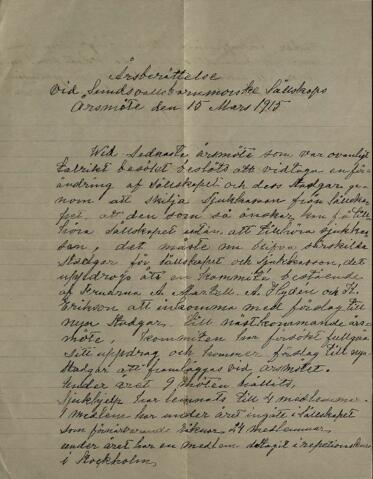 Årsberättelse
vid Sundsvallsbarnmorske Sällskaps
Årsmöte den 15 Mars 1915
Wid Sednaste årsmöte som var ovanligt
talrikt besökt beslöts att vidtaga en för-
ändring af Sällskapet och dess Stadgar, ge-
nom att skilja Sjukkassan från Sällska-
pet, att den som så önskar kan få till
höra Sällskapet utan att tillhöra sjukkas
san, det måste nu blifva särskilda
Stadgar för Sällskapet och Sjukkassan, det
uppdrogs åt en kommité bestående
af Fruarna A. Martell. A. Flydén och K.
Erikson att inkomma med förslag till
nya Stadgar. Till nästkommande års-
möte, kommitén har försökt fullgöra
sitt uppdrag och kommer förslag till nya
Stadgar att framläggas vid årsmötet.
Under året 9 möten hållits,
Sjukhjälp har lemnats till 4 medlemmar.
1 medlem har under året ingått i Sällskapet
som för närvarande räknar 24 medlemmar
under året har en medlem deltagit i repetionskurs
i Stockholm,